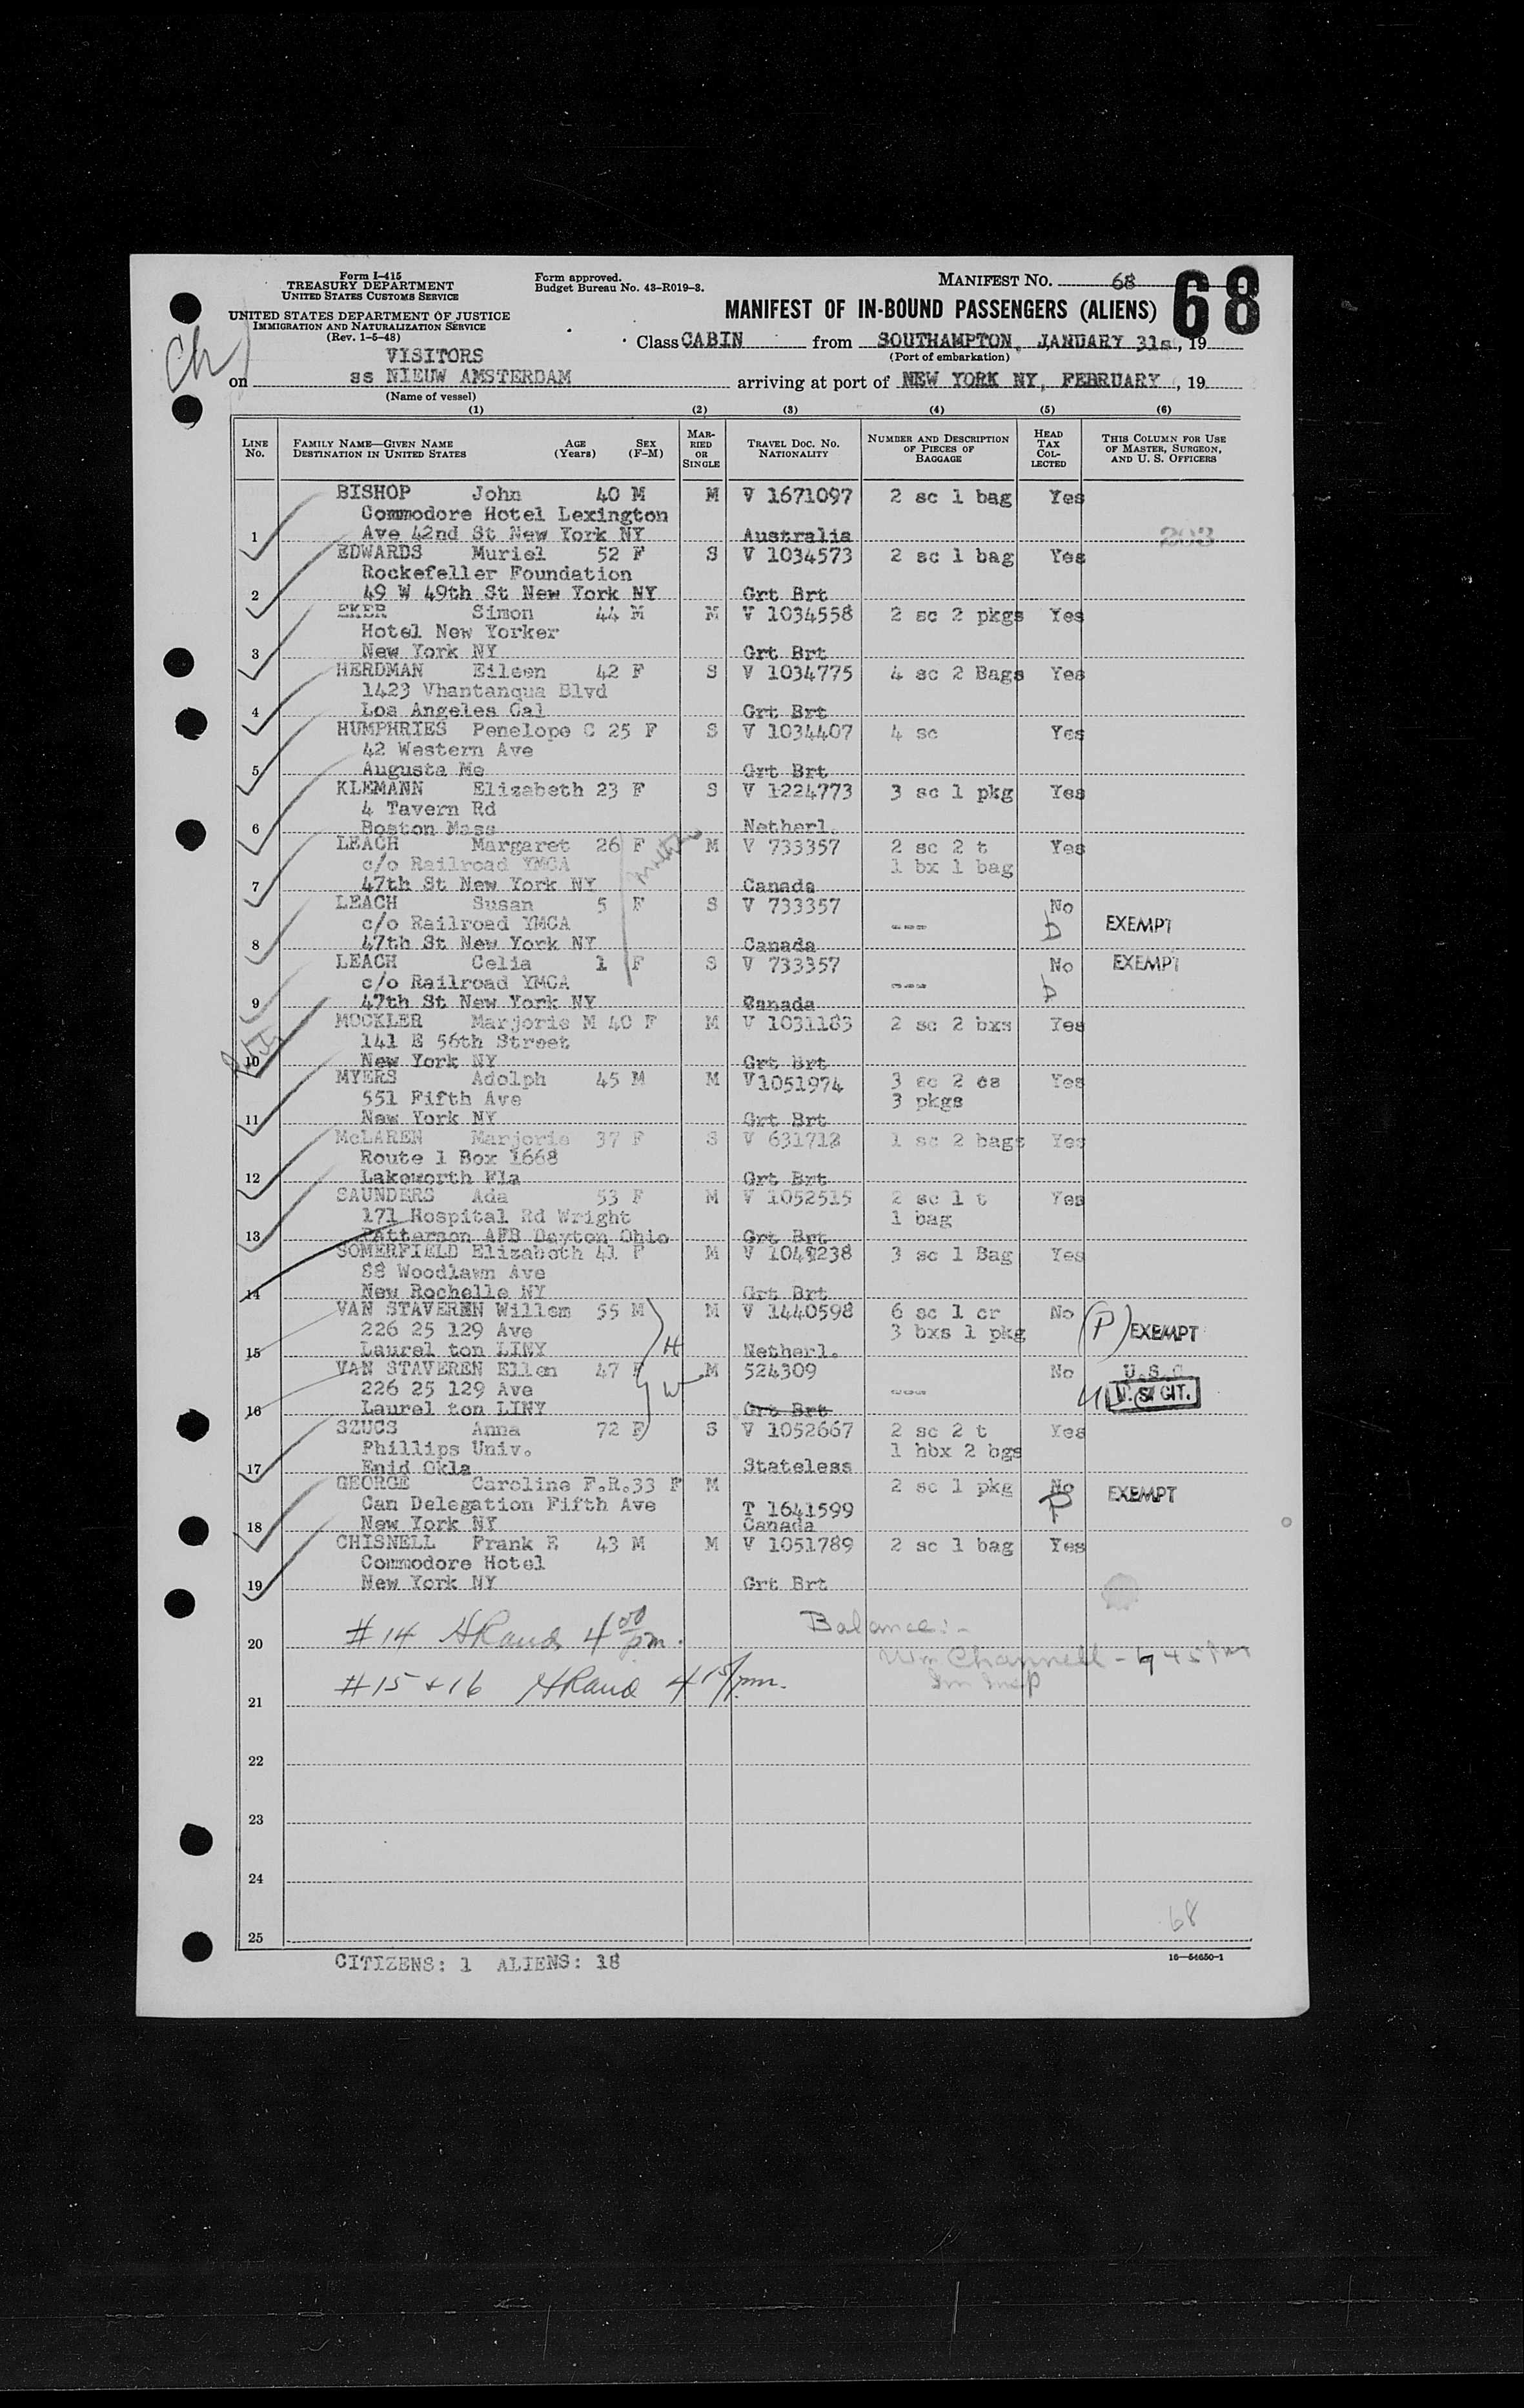 Form I-415
TREASURY DEPARTMENT
UNITED STATES CUSTOMS SERVICE
UNITED STATES DEPARTMENT OF JUSTICE
IMMIGRATION AND NATURALIZATION SERVICE
(Rev. 1-5-48)
Form approved.
Budget Bureau No. 43-R019-3.
MANIFEST NO. 68
68
MANIFEST OF IN-BOUND PASSENGERS (ALIENS)
Ch
Class CABIN from SOUTHAMPTON, JANUARY 31s, 19
(Port of embarkation)
VISITORS
on ss NIEUW AMSTERDAM arriving at port of NEW YORK NY, FEBRUARY, 19
(Name of vessel)
(1) (2) (3) (4) (5) (6)
LINE No. FAMILY NAME—GIVEN NAME DESTINATION IN UNITED STATES AGE (Years) SEX (F-M) MARRIED OR SINGLE TRAVEL DOC. NO. NATIONALITY NUMBER AND DESCRIPTION OF PIECES OF BAGGAGE HEAD TAX COLLECTED THIS COLUMN FOR USE OF MASTER, SURGEON, AND U. S. OFFICERS
BISHOP John 40 M M V 1671097 2 sc 1 bag Yes
Commodore Hotel Lexington
1 Ave 42nd St New York NY Australia 203
EDWARDS Muriel 52 F S V 1034573 2 sc 1 bag Yes
Rockefeller Foundation
2 49 W 49th St New York NY Grt Brt
EKER Simon 44 M M V 1034558 2 sc 2 pkgs Yes
Hotel New Yorker
3 New York NY Grt Brt
HERDMAN Eileen 42 F S V 1034775 4 sc 2 Bags Yes
1423 Vhantanqua Blvd
4 Los Angeles Cal Grt Brt
HUMPHRIES Penelope C 25 F S V 1034407 4 sc Yes
42 Western Ave
5 Augusta Me Grt Brt
KLEMANN Elizabeth 23 F S V 1224773 3 sc 1 pkg Yes
4 Tavern Rd
6 Boston Mass Netherl.
LEACH Margaret 26 F mother M V 733357 2 sc 2 t Yes
c/o Railroad YMCA 1 bx 1 bag
7 47th St New York NY Canada
LEACH Susan 5 F S V 733357 --- No
c/o Railroad YMCA EXEMPT
8 47th St New York NY Canada
LEACH Celia 1 F S V 733357 --- No EXEMPT
c/o Railroad YMCA
9 47th St New York NY Canada
MOCKLER Marjorie M 40 F M V 1031183 2 sc 2 bxs Yes
141 E 56th Street
10 New York NY Grt Brt
MYERS Adolph 45 M M V1051974 3 sc 2 cs Yes
551 Fifth Ave 3 pkgs
11 New York NY Grt Brt
McLAREN Marjorie 37 F S V 631712 1 sc 2 bags Yes
Route 1 Box 1668
12 Lakeworth Fla Grt Brt
SAUNDERS Ada 53 F M V 1052515 2 sc 1 t Yes
171 Hospital Rd Wright 1 bag
13 Patterson AFB Dayton Ohio Grt Brt
SOMERFIELD Elizabeth 41 F M 3 sc 1 Bag Yes
88 Woodlawn Ave
14 New Rochelle NY Grt Brt
VAN STAVEREN Willem 55 M M V 1440598 6 sc 1 cr No (P)
226 25 129 Ave 3 bxs 1 pkg EXEMPT
15 Laurel ton LINY H Netherl.
VAN STAVEREN Ellen 47 F W M 524309 No U.S.C
226 25 129 Ave --- U. S. CIT.
16 Laurel ton LINY Grt Brt
SZUCS Anna 72 F S V 1052667 2 sc 2 t Yes
Phillips Univ. 1 hbx 2 bgs
17 Enid Okla Stateless
GEORGE Caroline F.R. 33 F M 2 sc 1 pkg No EXEMPT
Can Delegation Fifth Ave T 1641599 P
18 New York NY Canada
CHISNELL Frank E 43 M M V 1051789 2 sc 1 bag Yes
Commodore Hotel
19 New York NY Grt Brt
20 #14 HRaud 4 00 pm. Balance:-
Wm Channell - 445 PM
21 #15 + 16 HRaud 4 15/pm. Im Insp
22
23
24
68
25
CITIZENS: 1 ALIENS: 18
16—54650-1